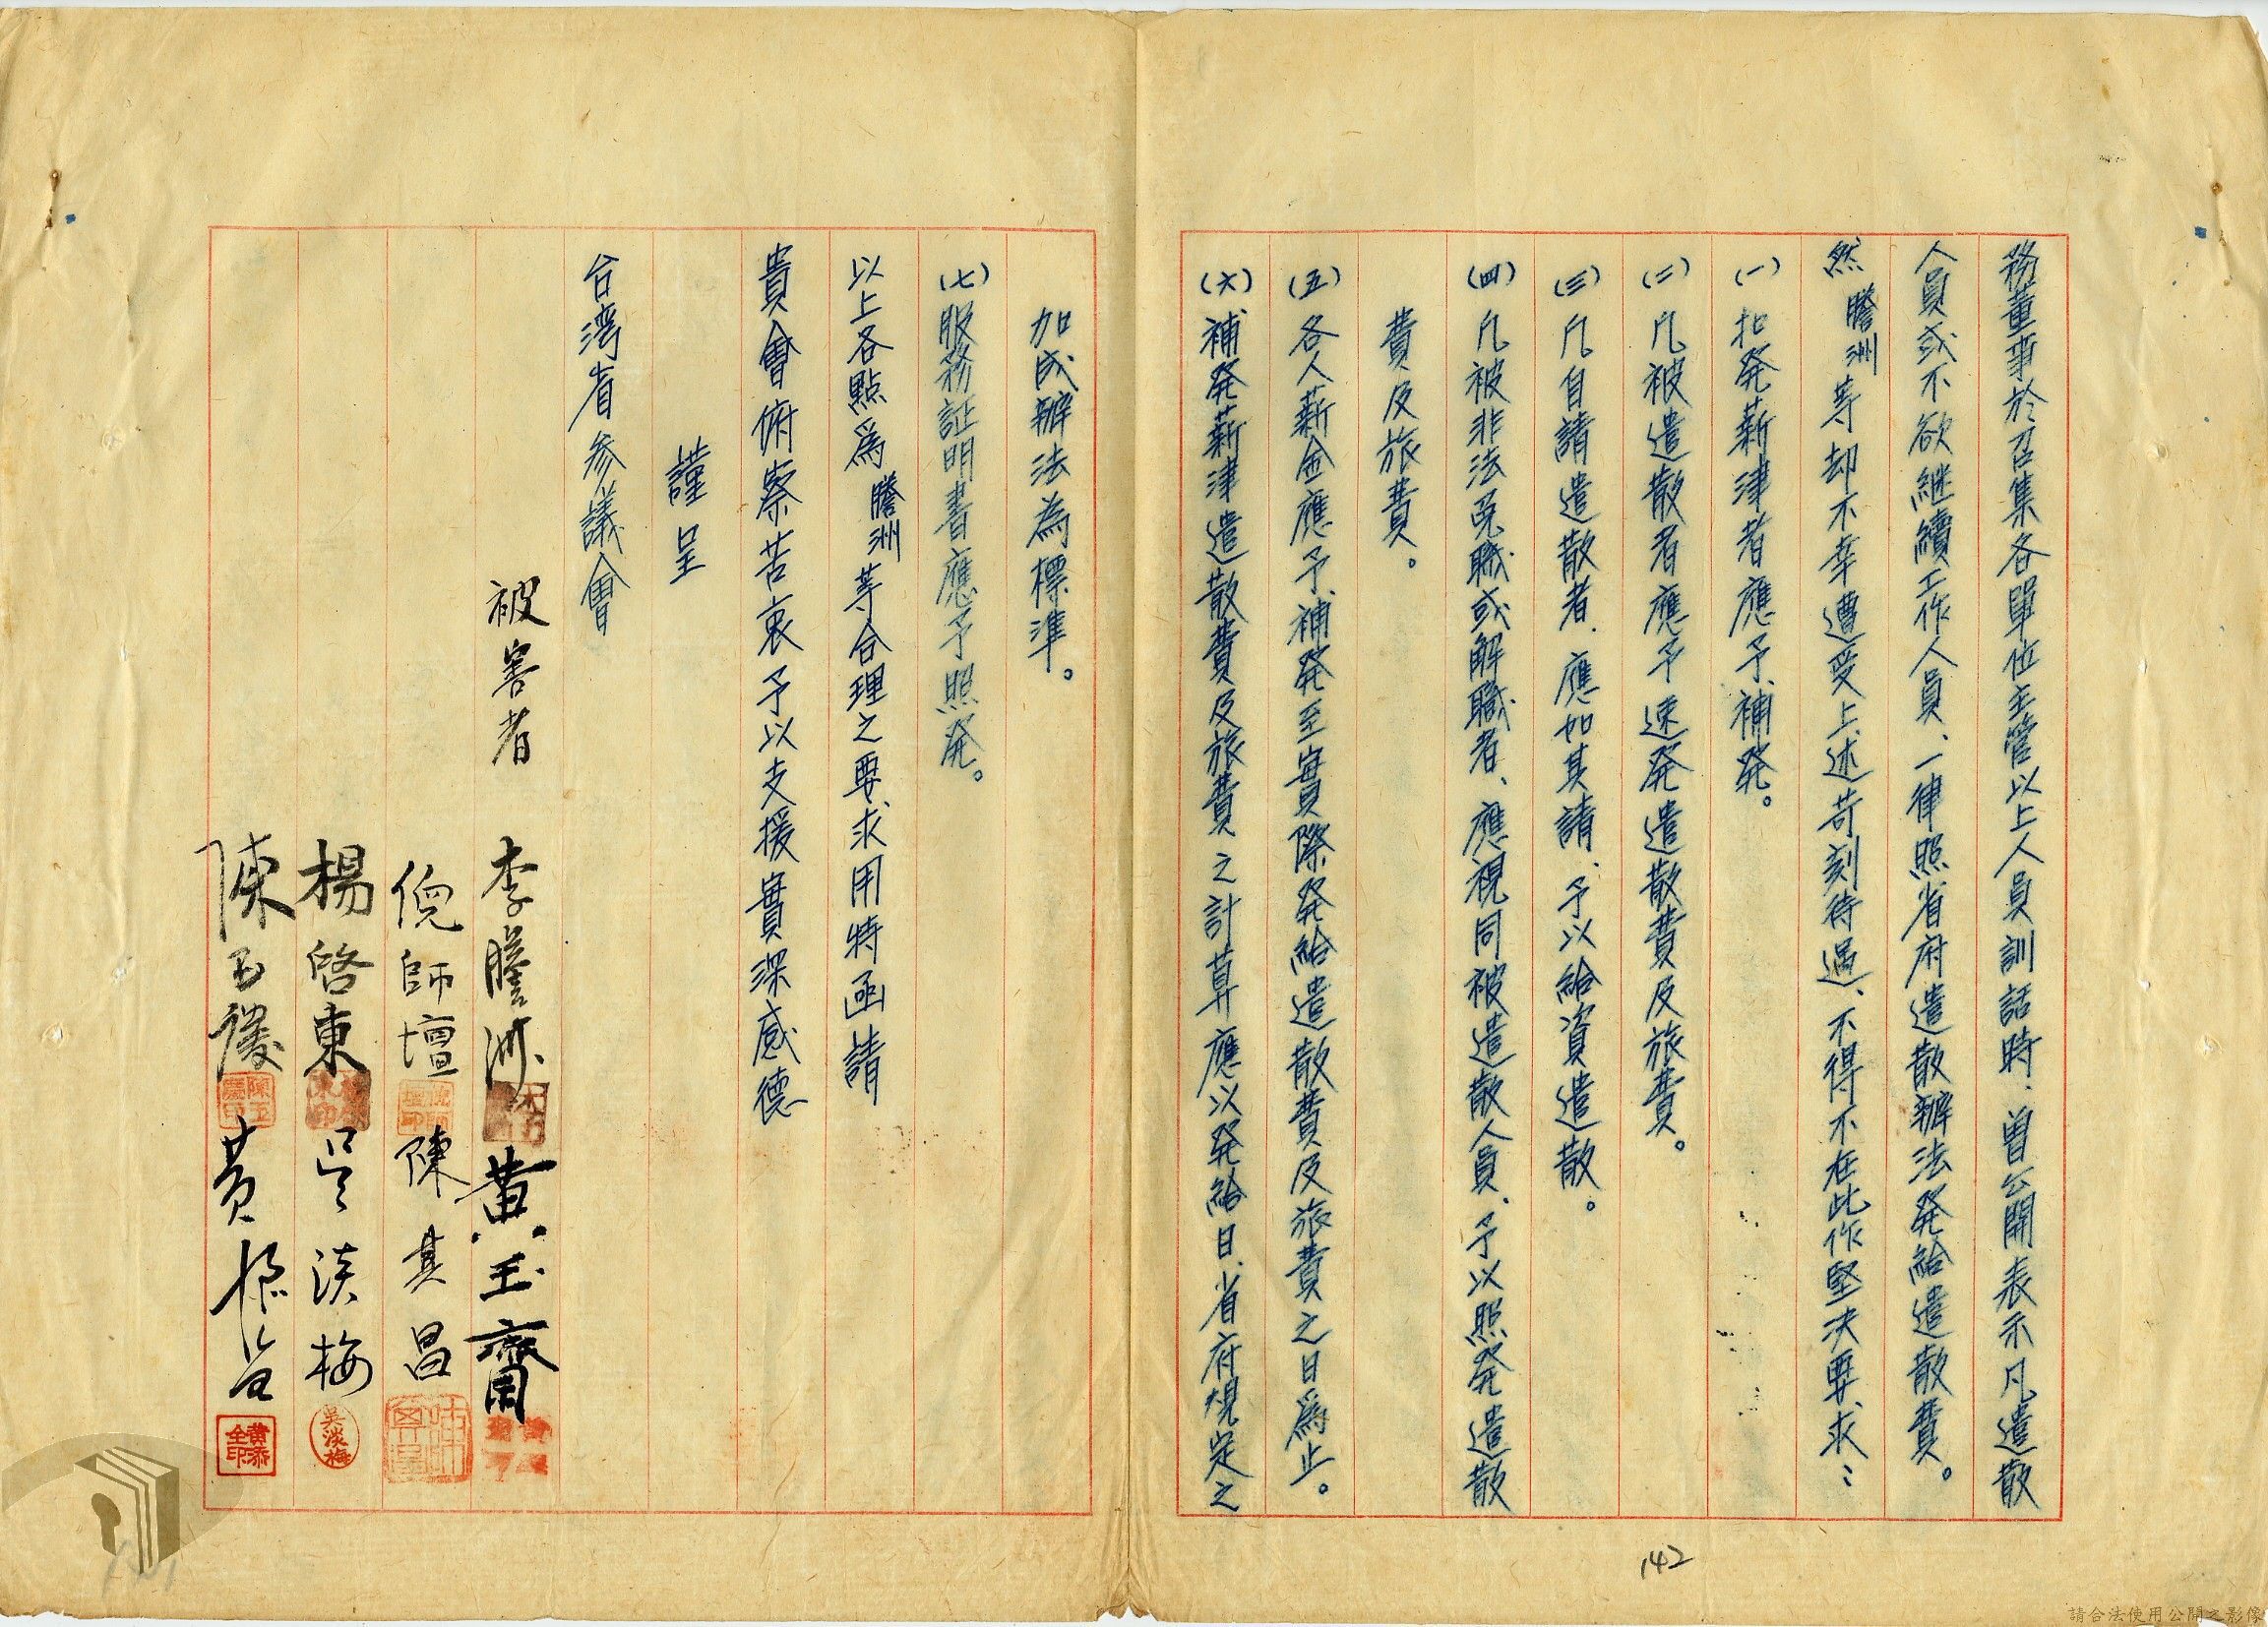 務董事於召集各單位主管以上人員訓話時、曾公開表示凡遣散
人員或不欲継續工作人員、一律照省府遣散辦法発給遣散費。
然騰洲等却不幸遭受上述苛刻待遇、不得不在此作堅決要求：
(一)扣発薪津者應予補発。
(二)凡被遣散者應予速発遣散費及旅費。
(三)凡自請遣散者、應如其請、予以給資遣散。
(四)凡被非法免職或解職者、應視同被遣散人員、予以照発遣散
費及旅費。
(五)各人薪金應予補発至實際発給遣散費及旅費之日爲止。
(六)補発薪津遣散費及旅費之計算應以発給日、省府規定之
142
加成辦法為標準。
(七)服務証明書應予照発。
以上各點爲騰洲等合理之要求用特函請
貴會俯察苦衷予以支援實深感德
謹呈
台湾省参議會
被害者 李騰洲 黃玉齋
倪師壇 陳其昌
楊啓東 吳淡梅
吳淡梅
陳玉 黃添全
黃添全印
請合法使用公開之影像